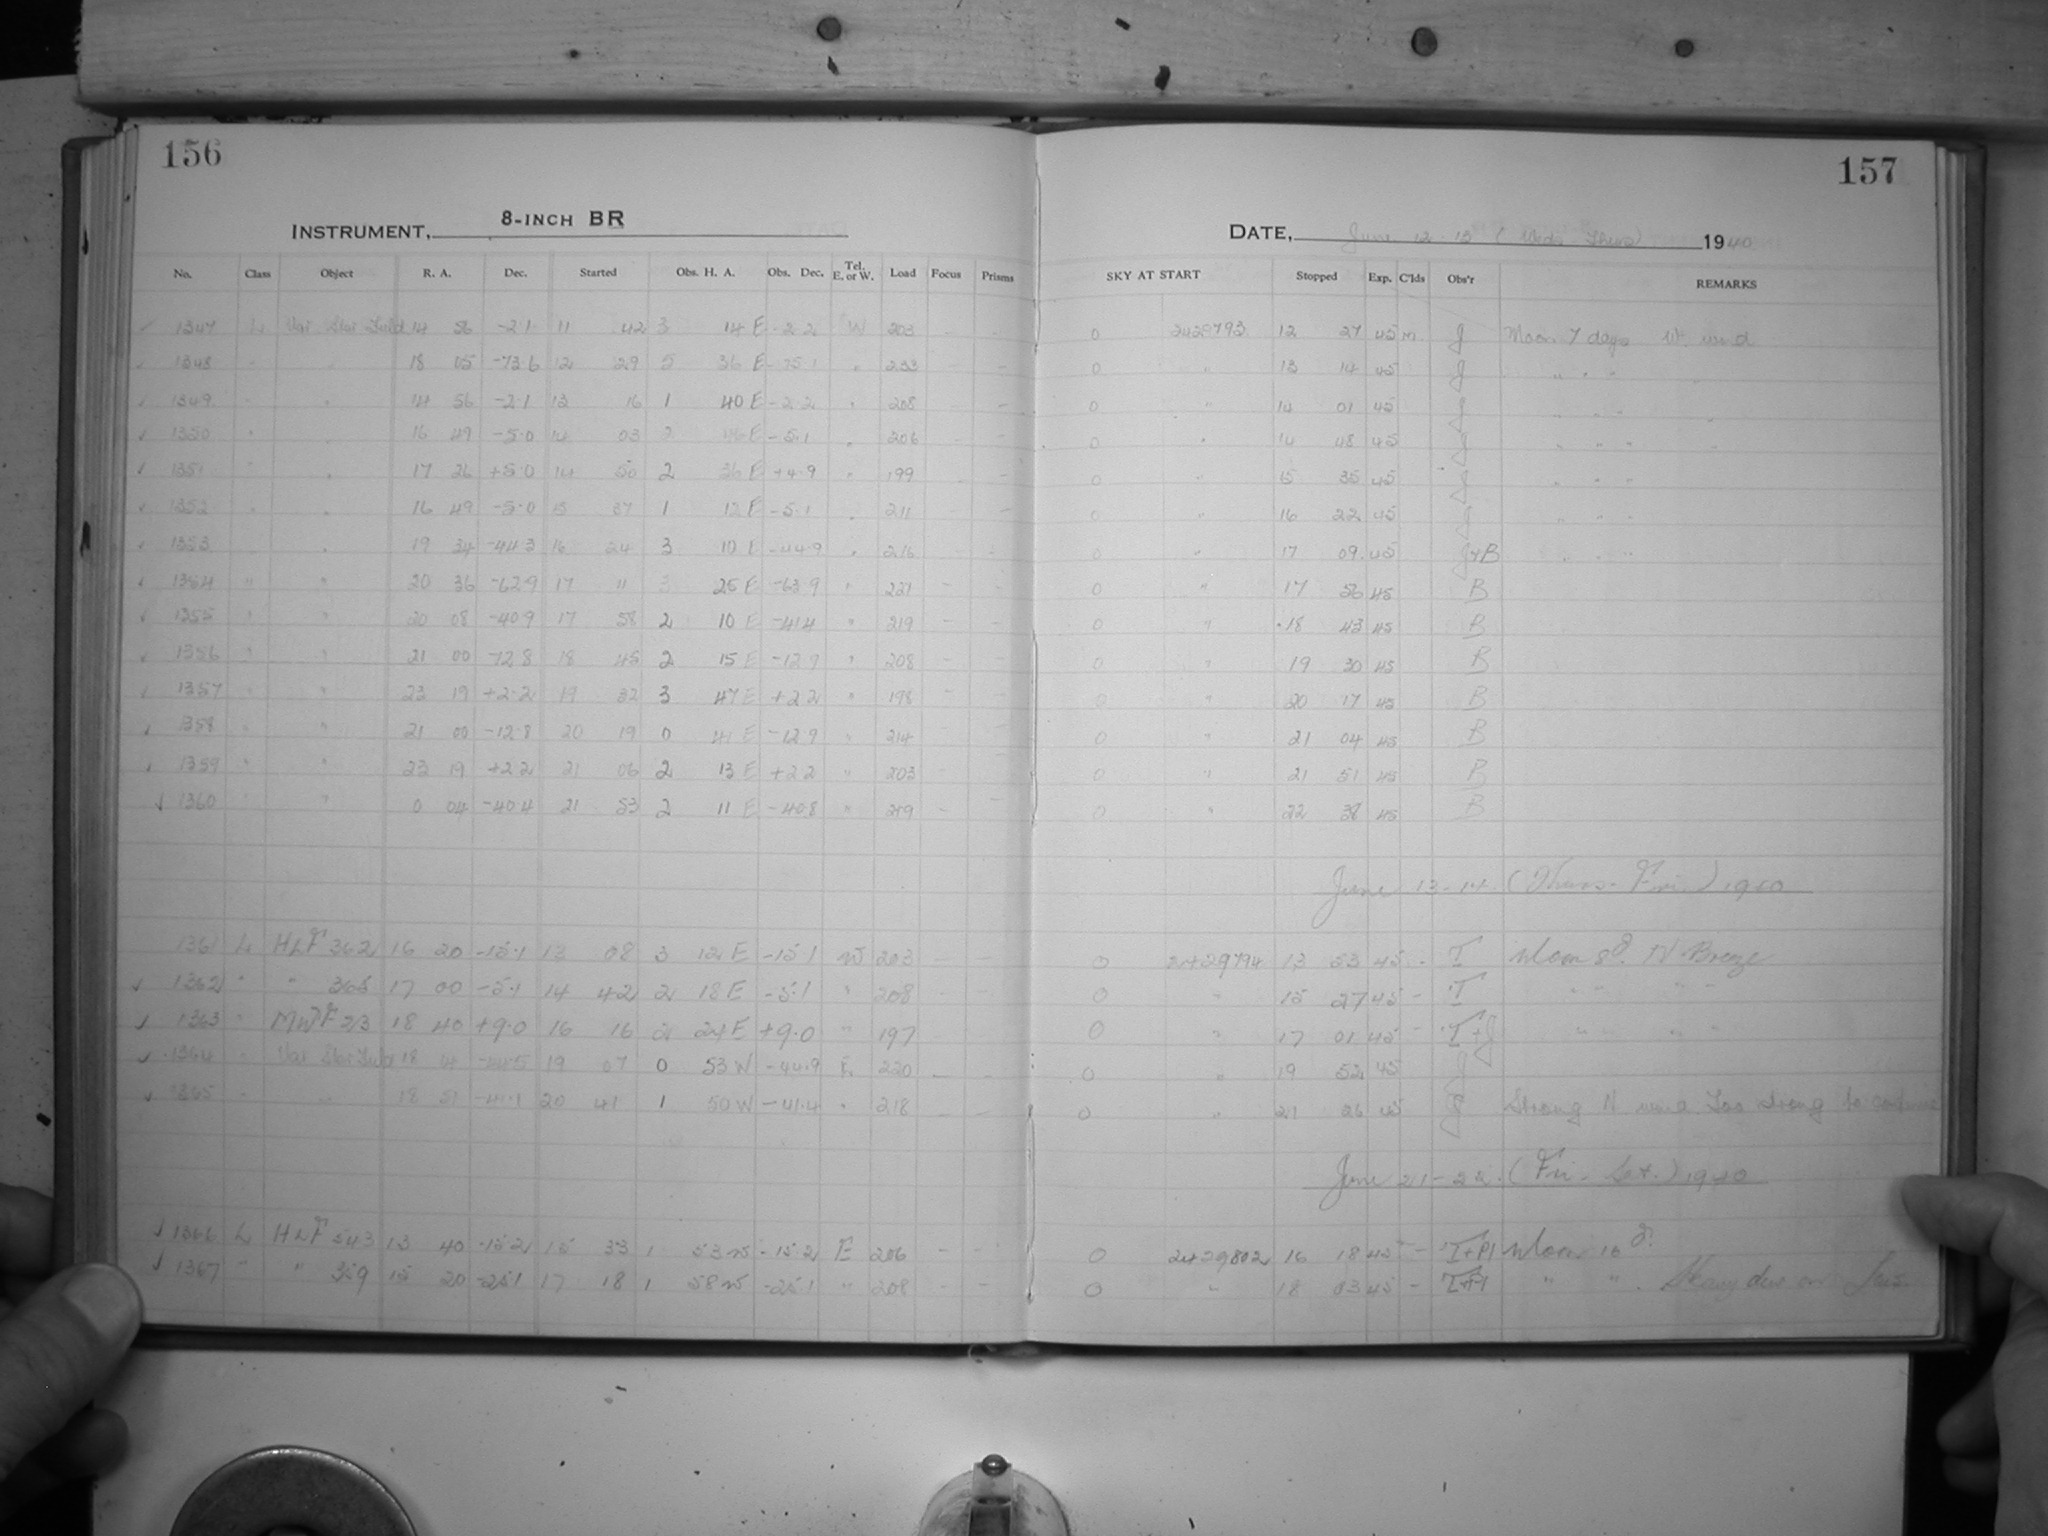 156
157
INSTRUMENT, 8-INCH BR
DATE, June 12-13 (Weds-Thurs) 1940
No. Class Object R. A. Dec. Started Obs. H. A. Obs. Dec. Tel. E. or W. Load Focus Prisms SKY AT START Stopped Exp. C'lds Obs'r REMARKS
1347 L Var Star Field 14 56 -2.1 11 42 3 14 E -2.2 W 203 - - 0 2429793 12 27 45 m J Moon 7 days W. wind
1348 " " 18 05 -73.6 12 29 5 36 E -75.1 " 233 - - 0 " 13 14 45 J " " "
1349 " " 14 56 -2.1 13 16 1 40 E -2.2 " 208 - - 0 " 14 01 45 J " " "
1350 " " 16 49 -5.0 14 03 E -5.1 " 206 - - 0 " 14 48 45 J " " "
1351 " " 17 26 +5.0 14 50 2 36 E +4.9 " 199 - - 0 " 15 35 45 J " " "
1352 " " 16 49 -5.0 15 37 1 12 E -5.1 " 211 - - 0 " 16 22 45 J " " "
1353 " " 19 34 -44.3 16 24 3 10 E -44.9 " 216 - - 0 " 17 09 45 J+B " " "
1354 " " 20 36 -62.9 17 11 3 25 E -63.9 " 221 - - 0 " 17 56 45 B
1355 " " 20 08 -40.9 17 58 2 10 E -41.4 " 219 - - 0 " 18 43 45 B
1356 " " 21 00 -12.8 18 45 2 15 E -12.9 " 208 - - 0 " 19 30 45 B
1357 " " 23 19 +2.2 19 32 3 47 E +2.2 " 198 - - 0 " 20 17 45 B
1358 " " 21 00 -12.8 20 19 0 41 E -12.9 " 214 - - 0 " 21 04 45 B
1359 " " 23 19 +2.2 21 06 2 13 E +2.2 " 203 - - 0 " 21 51 45 B
1360 " 0 04 -40.4 21 53 2 11 E -40.8 " 219 - - 0 " 22 38 45 B
June 13-14 (Thurs-Fri.) 1940
1361 L HLF 362 16 20 -15.1 13 08 3 12 E -15.1 W 203 - - 0 2429794 13 53 45 - T Moon 8d. N Breeze
1362 " " 365 17 00 -5.1 14 42 2 18 E -5.1 " 208 - - 0 " 15 27 45 - T " " " "
1363 " MWF 213 18 40 +9.0 16 16 2 24 E +9.0 " 197 - - 0 " 17 01 45 - T+J " " " "
1364 " Var Star Field 18 -44.5 19 07 0 53 W -44.9 E. 220 - - 0 " 19 52 45 J
1365 " " 18 51 -41.1 20 41 1 50 W -41.4 " 218 - - 0 " 21 26 45 J Strong N wind Too strong to continue
June 21-22. (Fri.-Sat.) 1940
1366 L HLF 543 13 40 -15.2 15 33 1 53 W -15.2 E 206 - - 0 2429802 16 18 45 - T+PI Moon 16d.
1367 " " 359 15 20 -25.1 17 18 1 58 W -25.1 " 208 - - 0 " 18 03 45 - T+PI " " . Heavy dew on Lens.